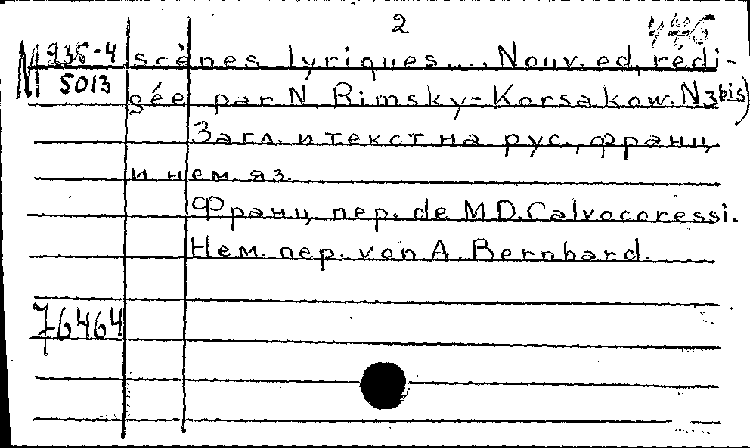 2
М 235-4 scènes lyriques.... Nouv. ed, rédi-
5013 gée par N. Rimsky-Korsakow. N 3 bis)
Загл. и текст на рус., франц.
и нем. яз.
Франц. пер. de M.D. Calvocoressi.
Нем. пер. von A. Bernhard.
76464